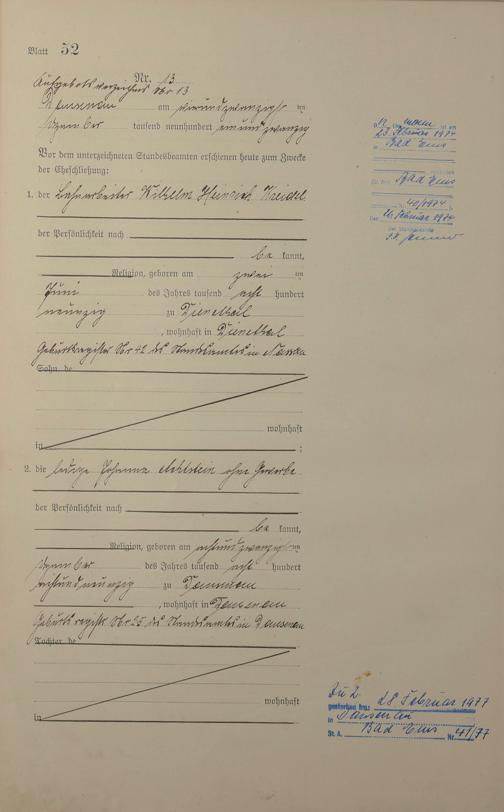 Blatt 52
Nr. 13
Aufgebotsverzeichnis Nr 13
Dausenau am vierundzwanzigsten
Dezember tausend neunhundert einundzwanzig
Vor dem unterzeichneten Standesbeamten erschienen heute zum Zwecke
der Eheschließung:
1. der Wilhelm Heinrich
der Persönlichkeit nach
be kannt,
Religion, geboren am zwei ten
Juni des Jahres tausend acht hundert
neunzig zu Dienethal
, wohnhaft in Dienethal
Geburtsregister Nr 42 des Standesamts in Nassau
Sohn de
wohnhaft
in ;
2. die ledige Johanna ohne Gewerbe
der Persönlichkeit nach
be kannt,
Religion, geboren am achtundzwanzigsten
Dezember des Jahres tausend acht hundert
achtundneunzig zu Dausenau
, wohnhaft in Dausenau
Geburtsregister Nr 25 des Standesamts in Dausenau
Tochter de
wohnhaft
in
23. Februar 1974
in Bad Ems
Bad Ems
Nr. 40/1974
Den 26. Februar 1974
Zu 2.
gestorben am: 28 Februar 1977
in Dausenau
St. A. Bad Ems Nr. 41/77